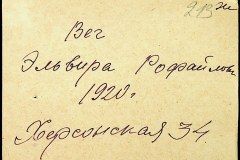 213 ж
Вег
Эльвира Рофайловн
1920 г
Херсонская 34